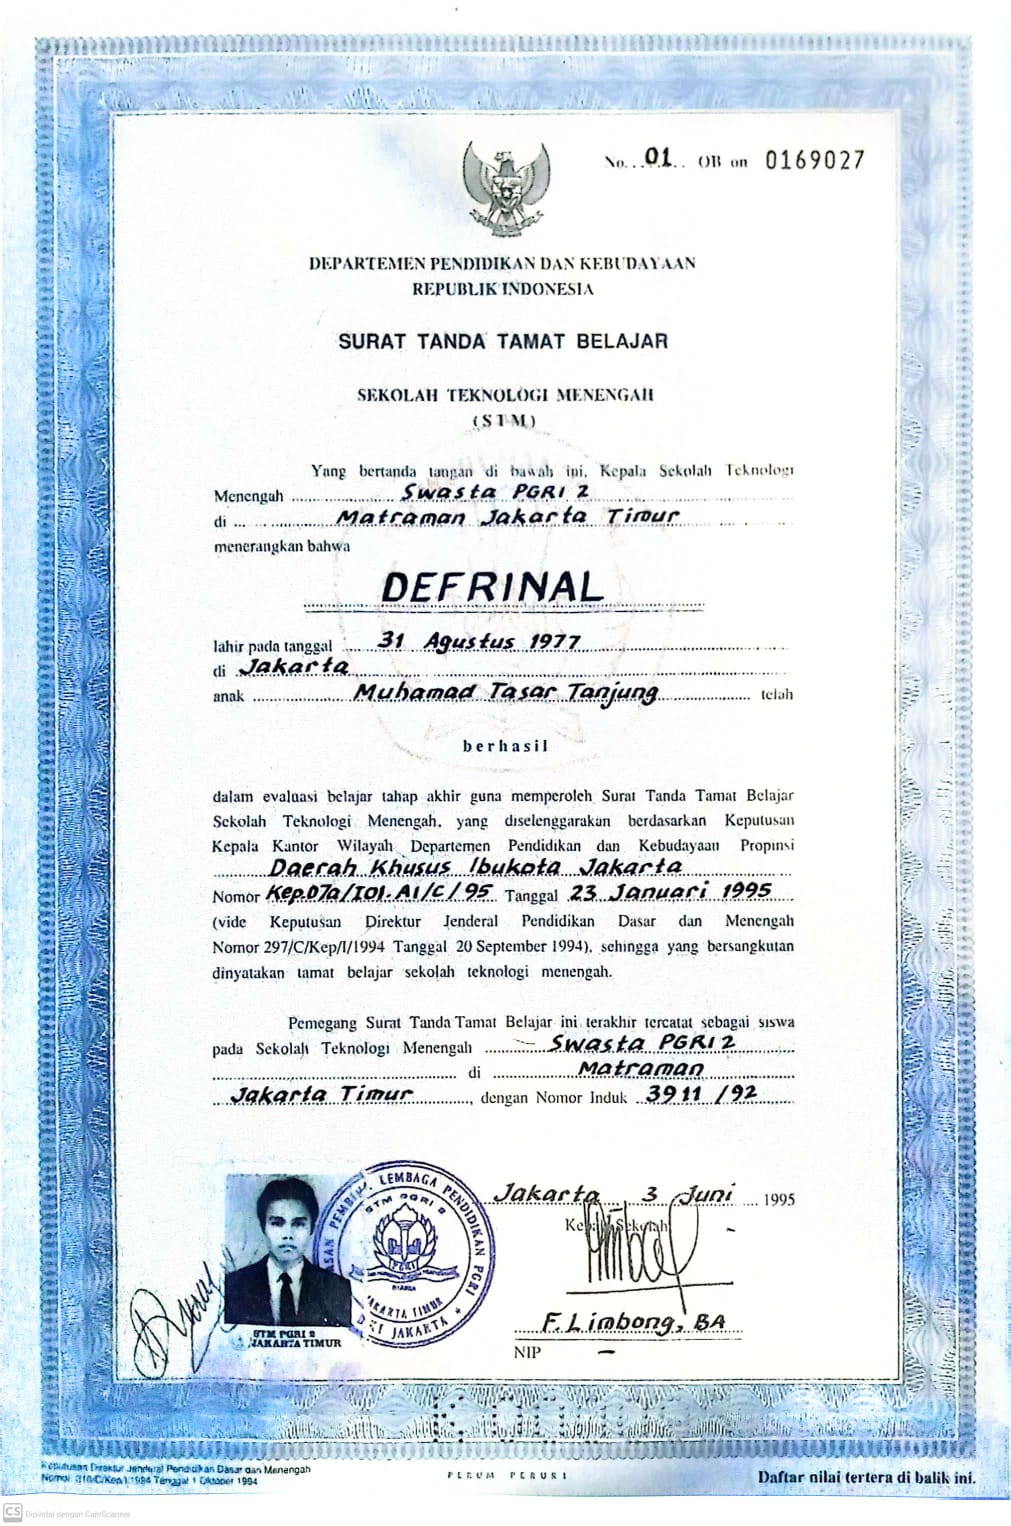 No. 01 OB on 0169027
DEPARTEMEN PENDIDIKAN DAN KEBUDAYAAN
REPUBLIK INDONESIA
SURAT TANDA TAMAT BELAJAR
SEKOLAH TEKNOLOGI MENENGAH
(STM)
Yang bertanda tangan di bawah ini, Kepala Sekolah Teknologi
Menengah Swasta PGRI 2
di Matraman Jakarta Timur
menerangkan bahwa
DEFRINAL
lahir pada tanggal 31 Agustus 1977
di Jakarta
anak Muhamad Tasar Tanjung telah
berhasil
dalam evaluasi belajar tahap akhir guna memperoleh Surat Tanda Tamat Belajar
Sekolah Teknologi Menengah, yang diselenggarakan berdasarkan Keputusan
Kepala Kantor Wilayah Departemen Pendidikan dan Kebudayaan Propinsi
Daerah Khusus Ibukota Jakarta
Nomor Kep.07a/I01.A1/C/95 Tanggal 23 Januari 1995
(vide Keputusan Direktur Jenderal Pendidikan Dasar dan Menengah
Nomor 297/C/Kep/I/1994 Tanggal 20 September 1994), sehingga yang bersangkutan
dinyatakan tamat belajar sekolah teknologi menengah.
Pemegang Surat Tanda Tamat Belajar ini terakhir tercatat sebagai siswa
pada Sekolah Teknologi Menengah Swasta PGRI 2
di Matraman
Jakarta Timur, dengan Nomor Induk 3911 /92
Jakarta 3 Juni 1995
Kepala Sekolah
F. Limbong, BA
NIP –
LEMBAGA PENDIDIKAN PGRI
STM PGRI 2
JAKARTA TIMUR
DKI JAKARTA
STM PGRI 2
JAKARTA TIMUR
Keputusan Direktur Jenderal Pendidikan Dasar dan Menengah
Tanggal 1 Oktober 1994
PERUM PERURI
Daftar nilai tertera di balik ini.
CS Dipindai dengan CamScanner